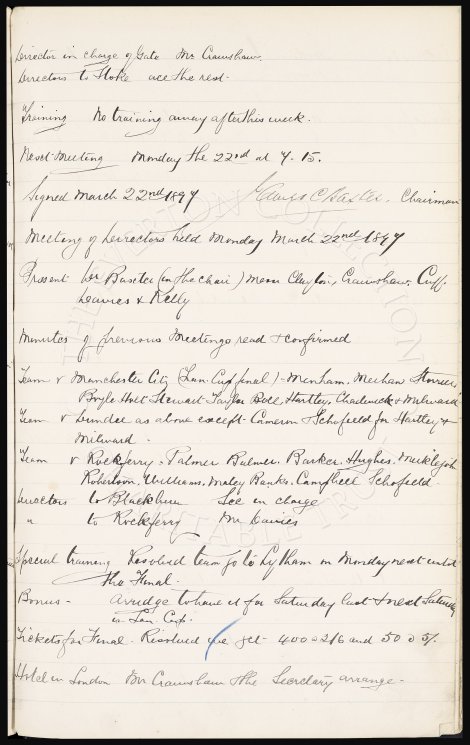 Director in charge of Gate Mr Crawshaw.
Directors to Stoke all the rest.
Training No training away after this week.
Next Meeting Monday the 22nd at 7.15.
Signed March 22nd 1897 James C Baxter. Chairman
Meeting of Directors held Monday March 22nd 1897
Present Dr Baxter (in the chair) Messrs Clayton, Crawshaw, Cuff.
Davies & Kelly
Minutes of previous Meetings read & confirmed
Team v Manchester City (Lan. Cup final) - Menham, Meehan Storrier
Boyle Holt Stewart Taylor Bell, Hartley, Chadwick & Milward
Team v Dundee as above except - Cameron & Schofield for Hartley &
Milward.
Team v Rockferry - Palmer Balmer, Barker, Hughes, Meiklejohn
Robertson, Williams, Maley Banks, Campbell Schofield.
Directors to Blackburn Sec in charge
" to Rockferry Mr Davies
Special training Resolved team go to Lytham on Monday next until
the Final.
Bonus - to have it for Saturday last & next Saturday
in Lan. Cup.
Tickets for Final - Resolved we get 400 @ 2/6 and 50 @ 5/.
Hotel in London Mr Crawshaw & the Secretary arrange.
THE EVERTON COLLECTION
CHARITABLE TRUST